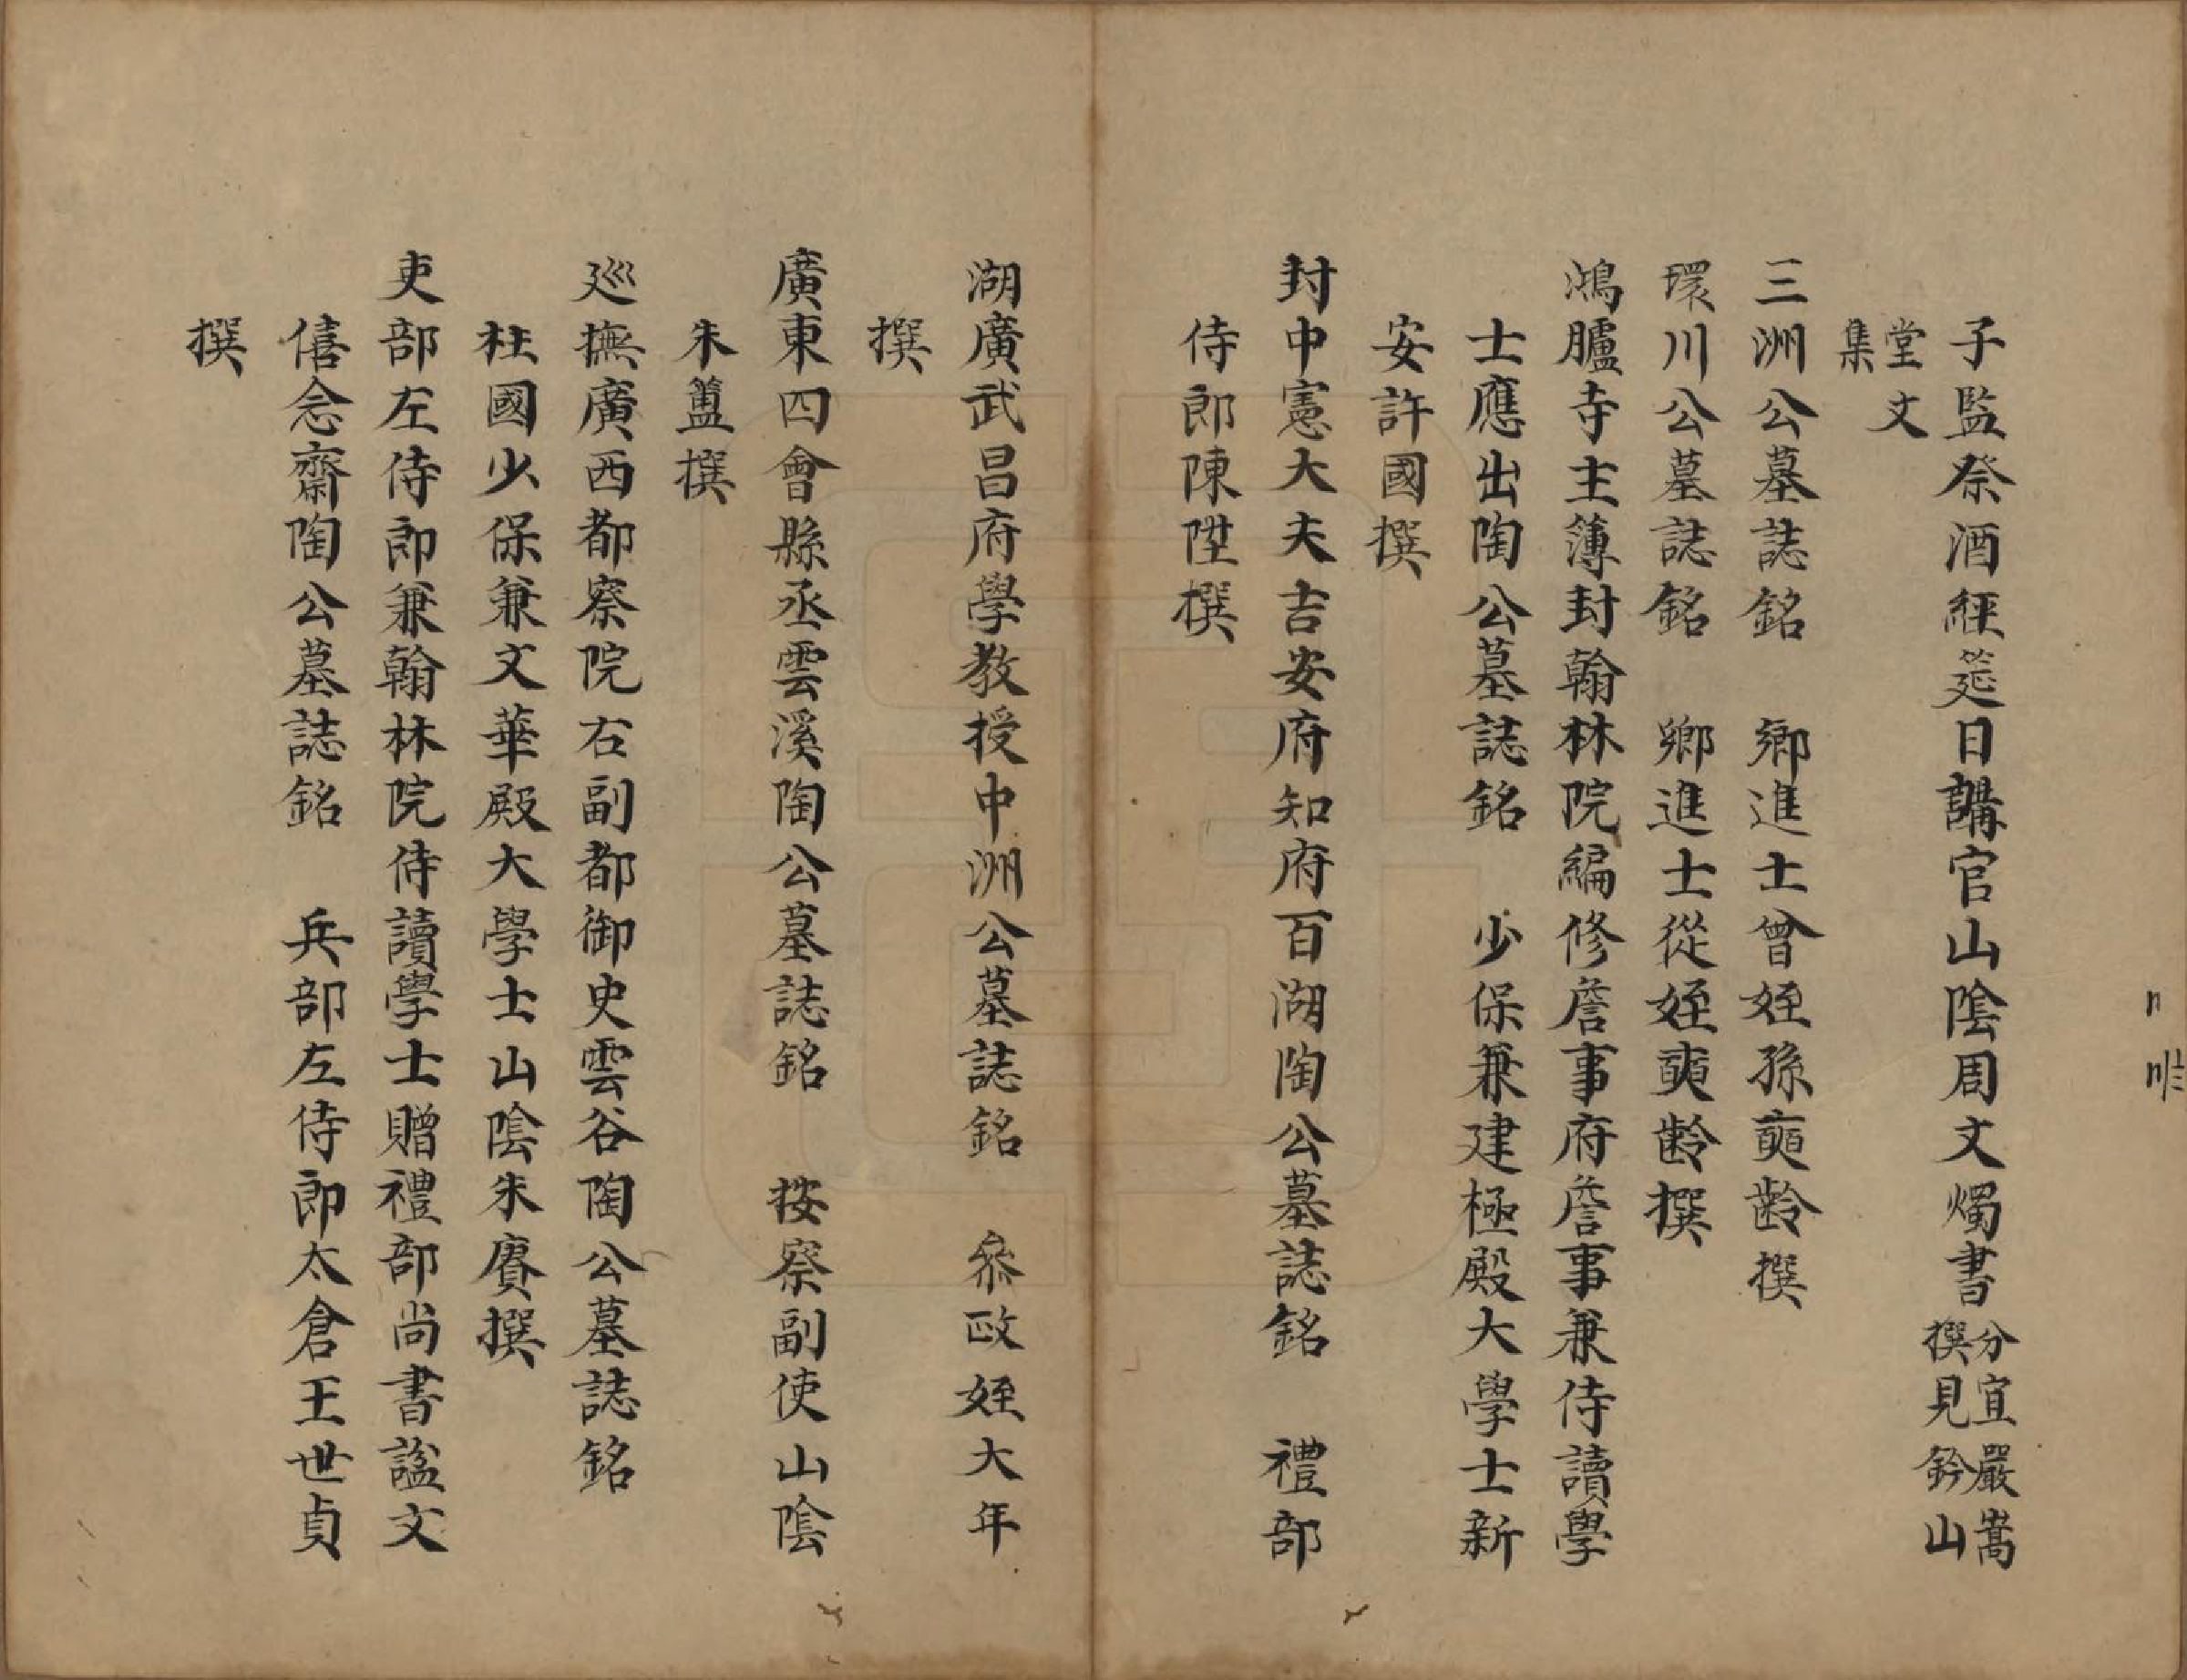 子監祭酒經筵日講官山陰周文燭書分宜嚴嵩撰見鈐山
堂文集
三洲公墓誌銘　鄉進士曾姪孫奭齡撰
環川公墓誌銘　鄉進士從姪奭齡撰
鴻臚寺主簿封翰林院編修詹事府詹事兼侍讀學
士應出陶公墓誌銘　少保兼建極殿大學士新
安許國撰
封中憲大夫吉安府知府百湖陶公墓誌銘　禮部
侍郎陳陞撰
湖廣武昌府學教授中洲公墓誌銘　叅政姪大年
撰
廣東四會縣丞雲溪陶公墓誌銘　按察副使山陰
朱簠撰
巡撫廣西都察院右副都御史雲谷陶公墓誌銘
柱國少保兼文華殿大學士山陰朱賡撰
吏部左侍郎兼翰林院侍讀學士贈禮部尚書謚文
僖念齋陶公墓誌銘　兵部左侍郎太倉王世貞
撰